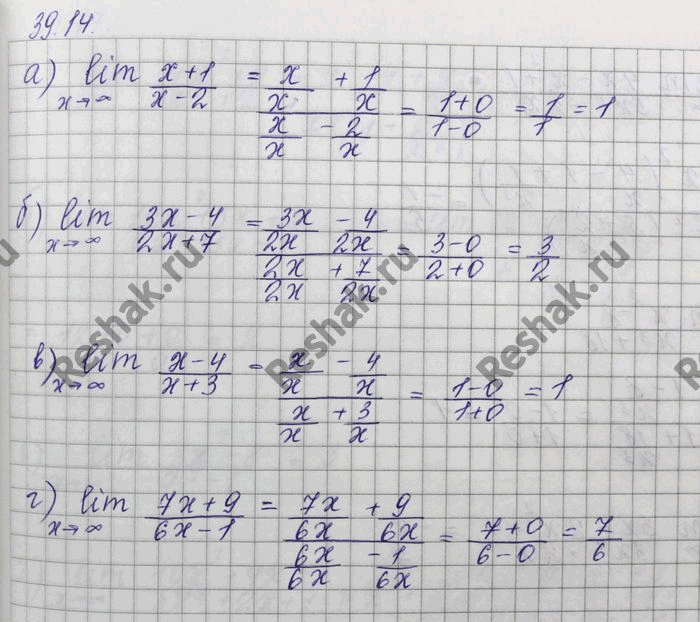 39.14.
а) lim x→∞ (x+1)/(x-2) = (x/x + 1/x)/(x/x - 2/x) = (1+0)/(1-0) = 1/1 = 1
б) lim x→∞ (3x-4)/(2x+7) = (3x/2x - 4/2x)/(2x/2x + 7/2x) = (3-0)/(2+0) = 3/2
в) lim x→∞ (x-4)/(x+3) = (x/x - 4/x)/(x/x + 3/x) = (1-0)/(1+0) = 1
г) lim x→∞ (7x+9)/(6x-1) = (7x/6x + 9/6x)/(6x/6x - 1/6x) = (7+0)/(6-0) = 7/6
Reshak.ru
Reshak.ru
Reshak.ru